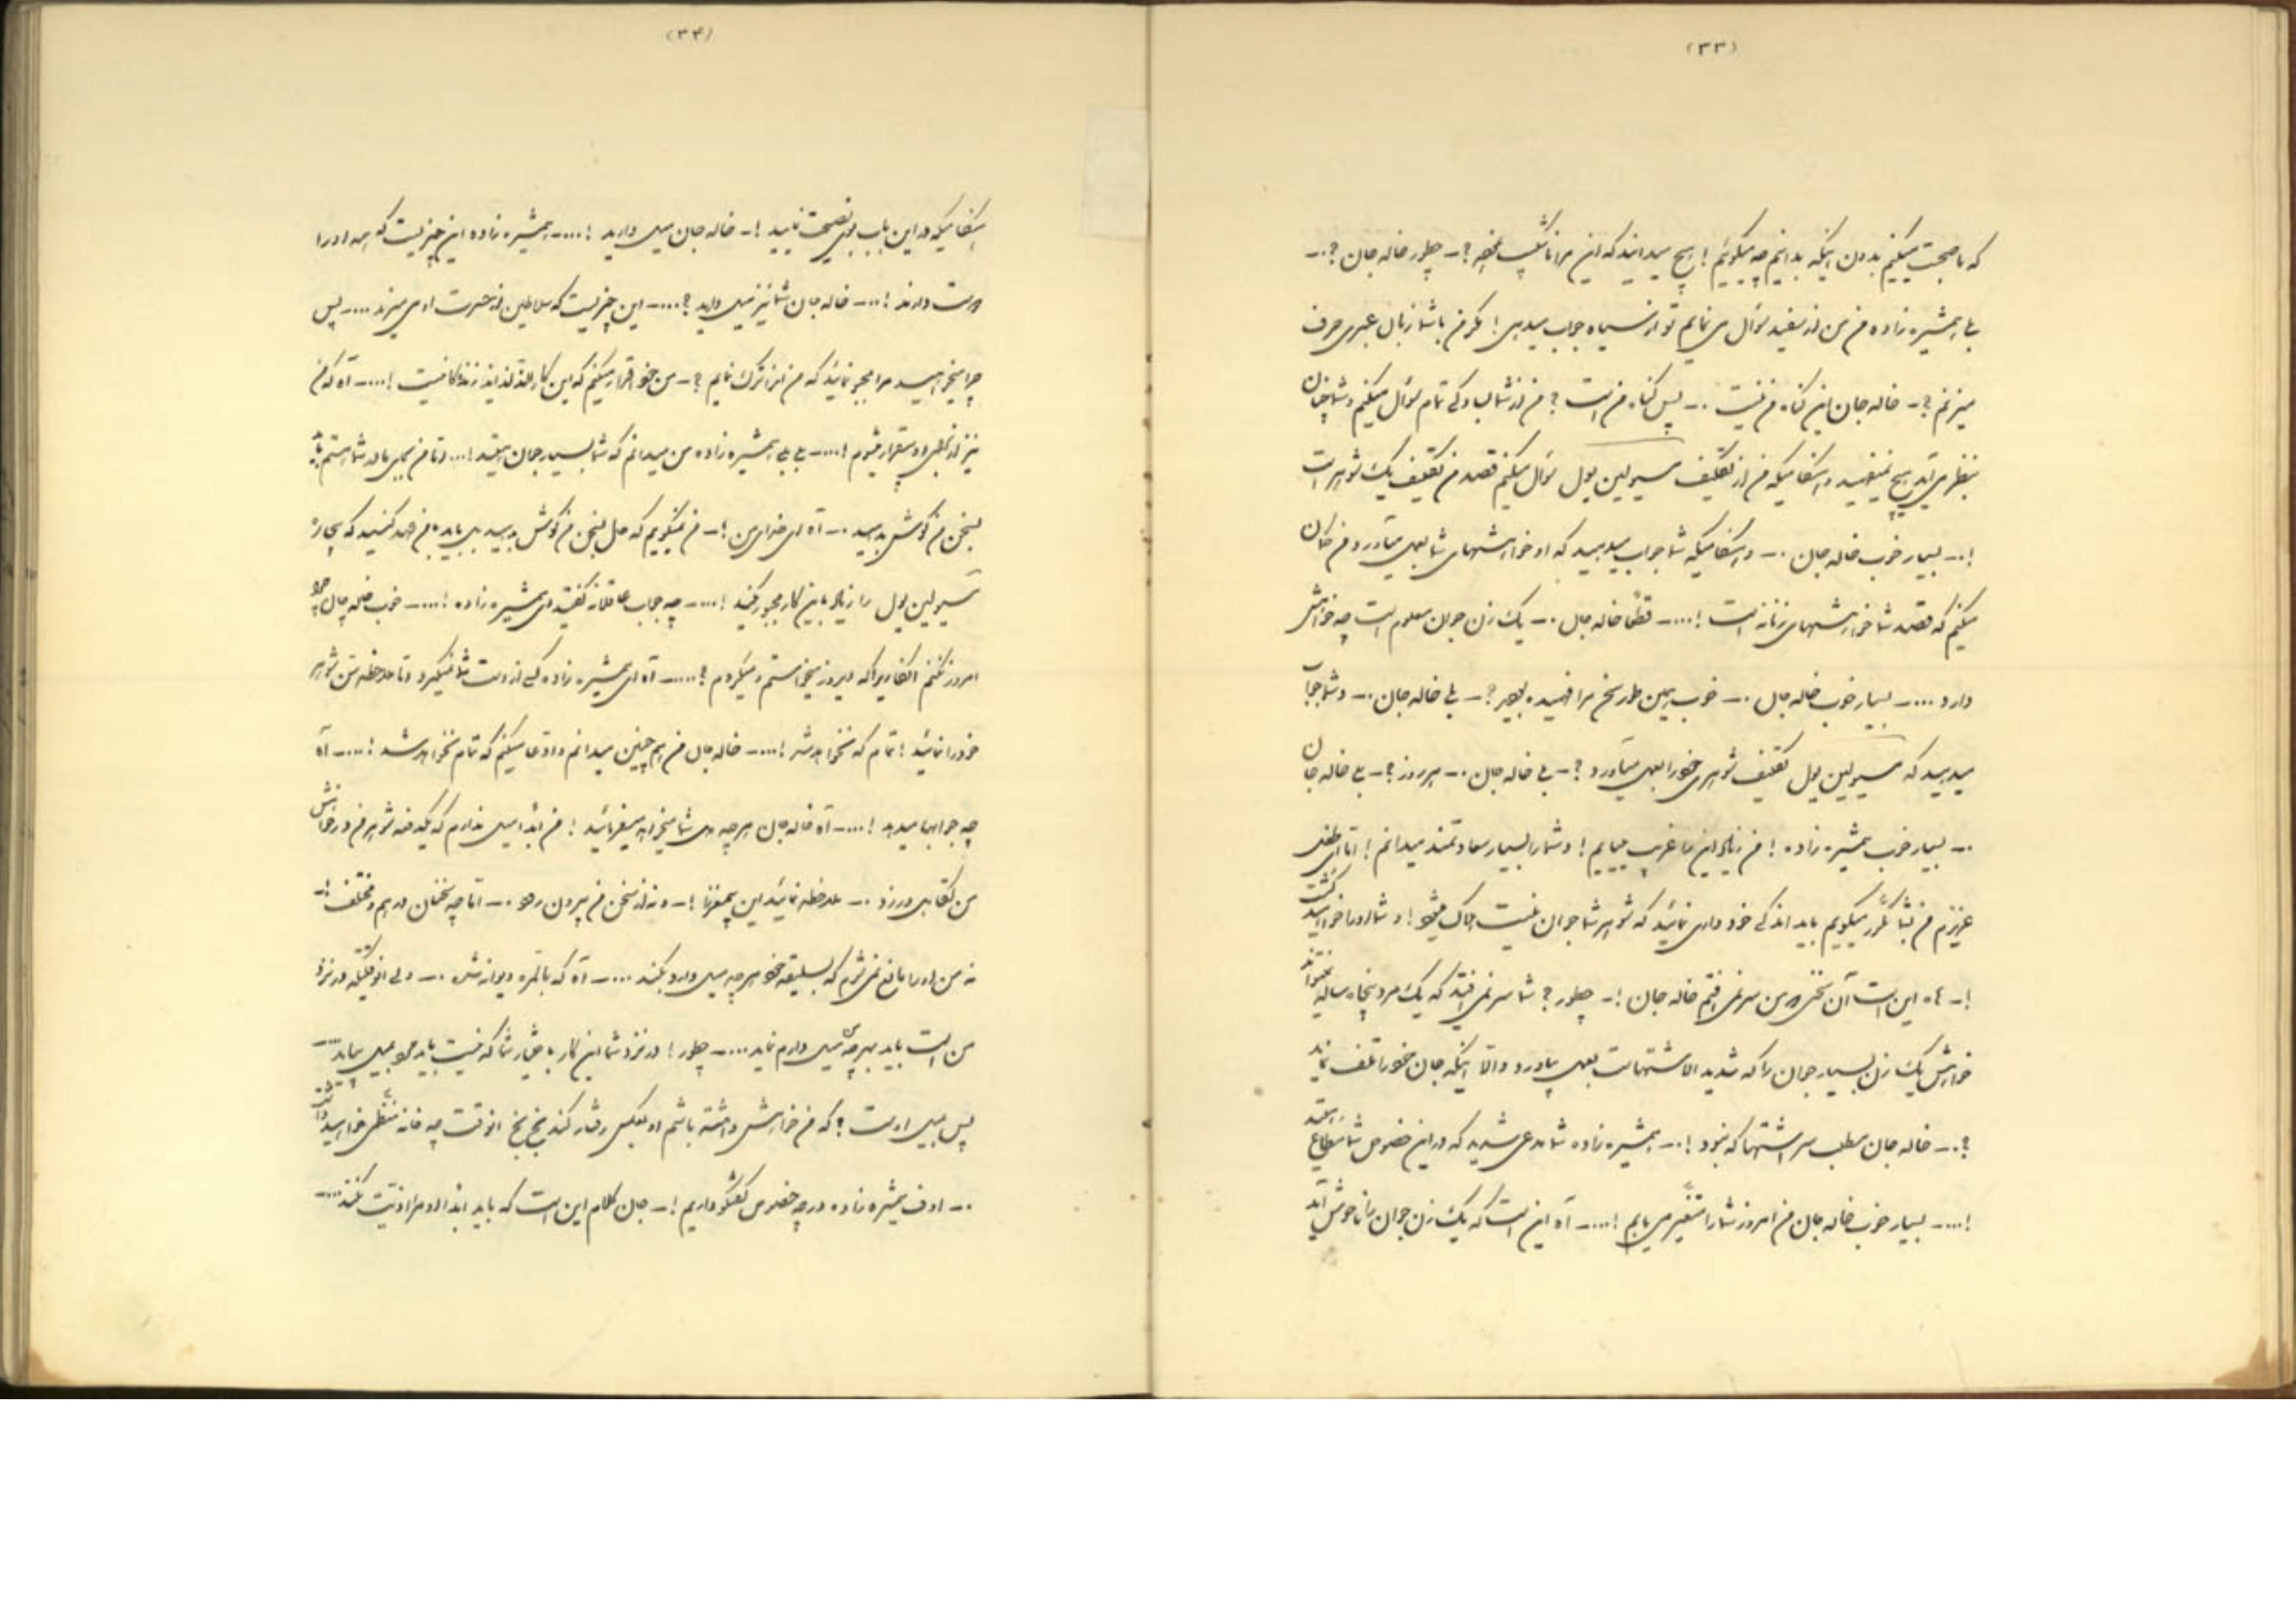 (۳۳)
که ما صحبت میکنیم بدون اینکه بدانیم چه میگوئیم ! هیچ میدانید که این مرا ناشکیب میکند ؟ – چطور خاله جان ؟ –
بلی همشیره زاده من من از سفید سؤال می نمایم تو از سیاه جواب میدهی ! مگر من با شما زبان عبری حرف
میزنم ؟ – خاله جان این گناه من نیست . – پس گناه من است ؟ من از شما سؤال میکنم و شما چنان
بنظر می آید هیچ نمیفهمید و هنگامیکه من از تکلیف مسیو لین پول سؤال میکنم قصد من تکلیف یک شوهر است
! .– بسیار خوب خاله جان . – و هنگامیکه شما جواب میدهید که او خواهشهای شما بعمل می آورد من گمان
میکنم که قصد شما خواهشهای زنانه است ! .... – قطعا خاله جان . – یک زن جوان معلوم است چه خواهش
دارد .... – بسیار خوب خاله جان . – خوب همین طور سخن مرا فهمیده بودید ؟ – بلی خاله جان . – و شما جواب
میدهید که مسیو لین پول تکلیف شوهری خود را بعمل می آورد ؟ – بلی خاله جان . – هر روز ؟ – بلی خاله جان
. – بسیار خوب همشیره زاده ! من زیاد این را غریب مییابم ! و شما را بسیار سعادتمند میدانم ! اما ای طفل
عزیزم من بشما مکرر میگویم باید اندکی خود داری نمائید که شوهر شما جوان نیست هلاک میشود ! و شما او را خواهید کشت
! – آه این است آن سخنی که من سر نمی افتم خاله جان ! – چطور ؟ شما سر نمی افتید که یک مرد پنجاه ساله نمیتواند
خواهش یک زن بسیار جوان را که شدید الاشتهاست بعمل بیاورد و الا اینکه جان خود را تلف نماید
؟ . – خاله جان مطلب سر اشتها که نبود ! . – همشیره زاده شما مدعی شدید که در این خصوص شما
! .... – بسیار خوب خاله جان من امروز شما را متغیر می یابم ! .... – آه این است که یک زن جوان را ناخوش آید
(۳۴)
هنگامیکه در این باب باو نصیحت نمایید ! – خاله جان میل دارید ! .... – همشیره زاده این چیزیست که همه او را
دوست دارند ! ... – خاله جان شما نیز میل دارید ؟ .... – این چیزیست که سلاطین از حسرت او می میرند .... – پس
چرا میخواهید مرا مجبور نمائید که من او را ترک نمایم ؟ – من خود اقرار میکنم که این کار الذ لذایذ زندگانیست ! .... – آه که من
نیز از بی قرار میشوم ! .... – بلی بلی همشیره زاده من میدانم که شما بسیار جوان هستید ! ... و تا من بجای مادر شما هستم باید
بسخن من گوش بدهید . – آه ای خدای من ! – من نمیگویم که حال بسخن من گوش بدهید ولی باید بمن عهد کنید که بیچاره
مسیو لین پول را زیاد باین کار مجبور نکنید ! .... – چه جواب عاقلانه گفتید ای همشیره زاده ! .... – خوب خاله جان چرا
امروز نکنم آنکاریرا که دیروز میخواستم و میکردم ؟ ..... – آه ای همشیره زاده کسی از دست شما نمیگیرد و اما ملاحظه سن شوهر
خود را نمائید ! تمام که نخواهد شد ! .... – خاله جان من هم چنین میدانم و ادعا میکنم که تمام نخواهد شد ! .... – آه
چه جوابها میدهد ! .... – آه خاله جان هر چه دل شما میخواهد میفرمائید ! من ابدا میل ندارم که یکدفعه شوهر من در خواهش
من تکاهل ورزد . – ملاحظه نمائید این بیمغز را ! – و نه از سخن من بیرون رود . – اما چه سخنان درهم و مختلف ! –
نه من او را مانع نمی شوم که بسلیقه خود هر چه میل دارد بکند .... – آه که بالمره دیوانه شد . – ولی آنوقتیکه در نزد
من است باید بهر چه میل دارم نماید .... – چطور ! در نزد شما این کار باختیار شما که نیست باید خود بمیل بیاید ....
پس بمیل اوست ؟ که من خواهش داشته باشم او بعکس رفتار کند بخ بخ آنوقت چه خانه منظمی خواهید داشت
. – اوف همشیره زاده در چه خصوص گفتگو داریم ! – جان کلام این است که باید ابدا او مرا اذیت نکند ....